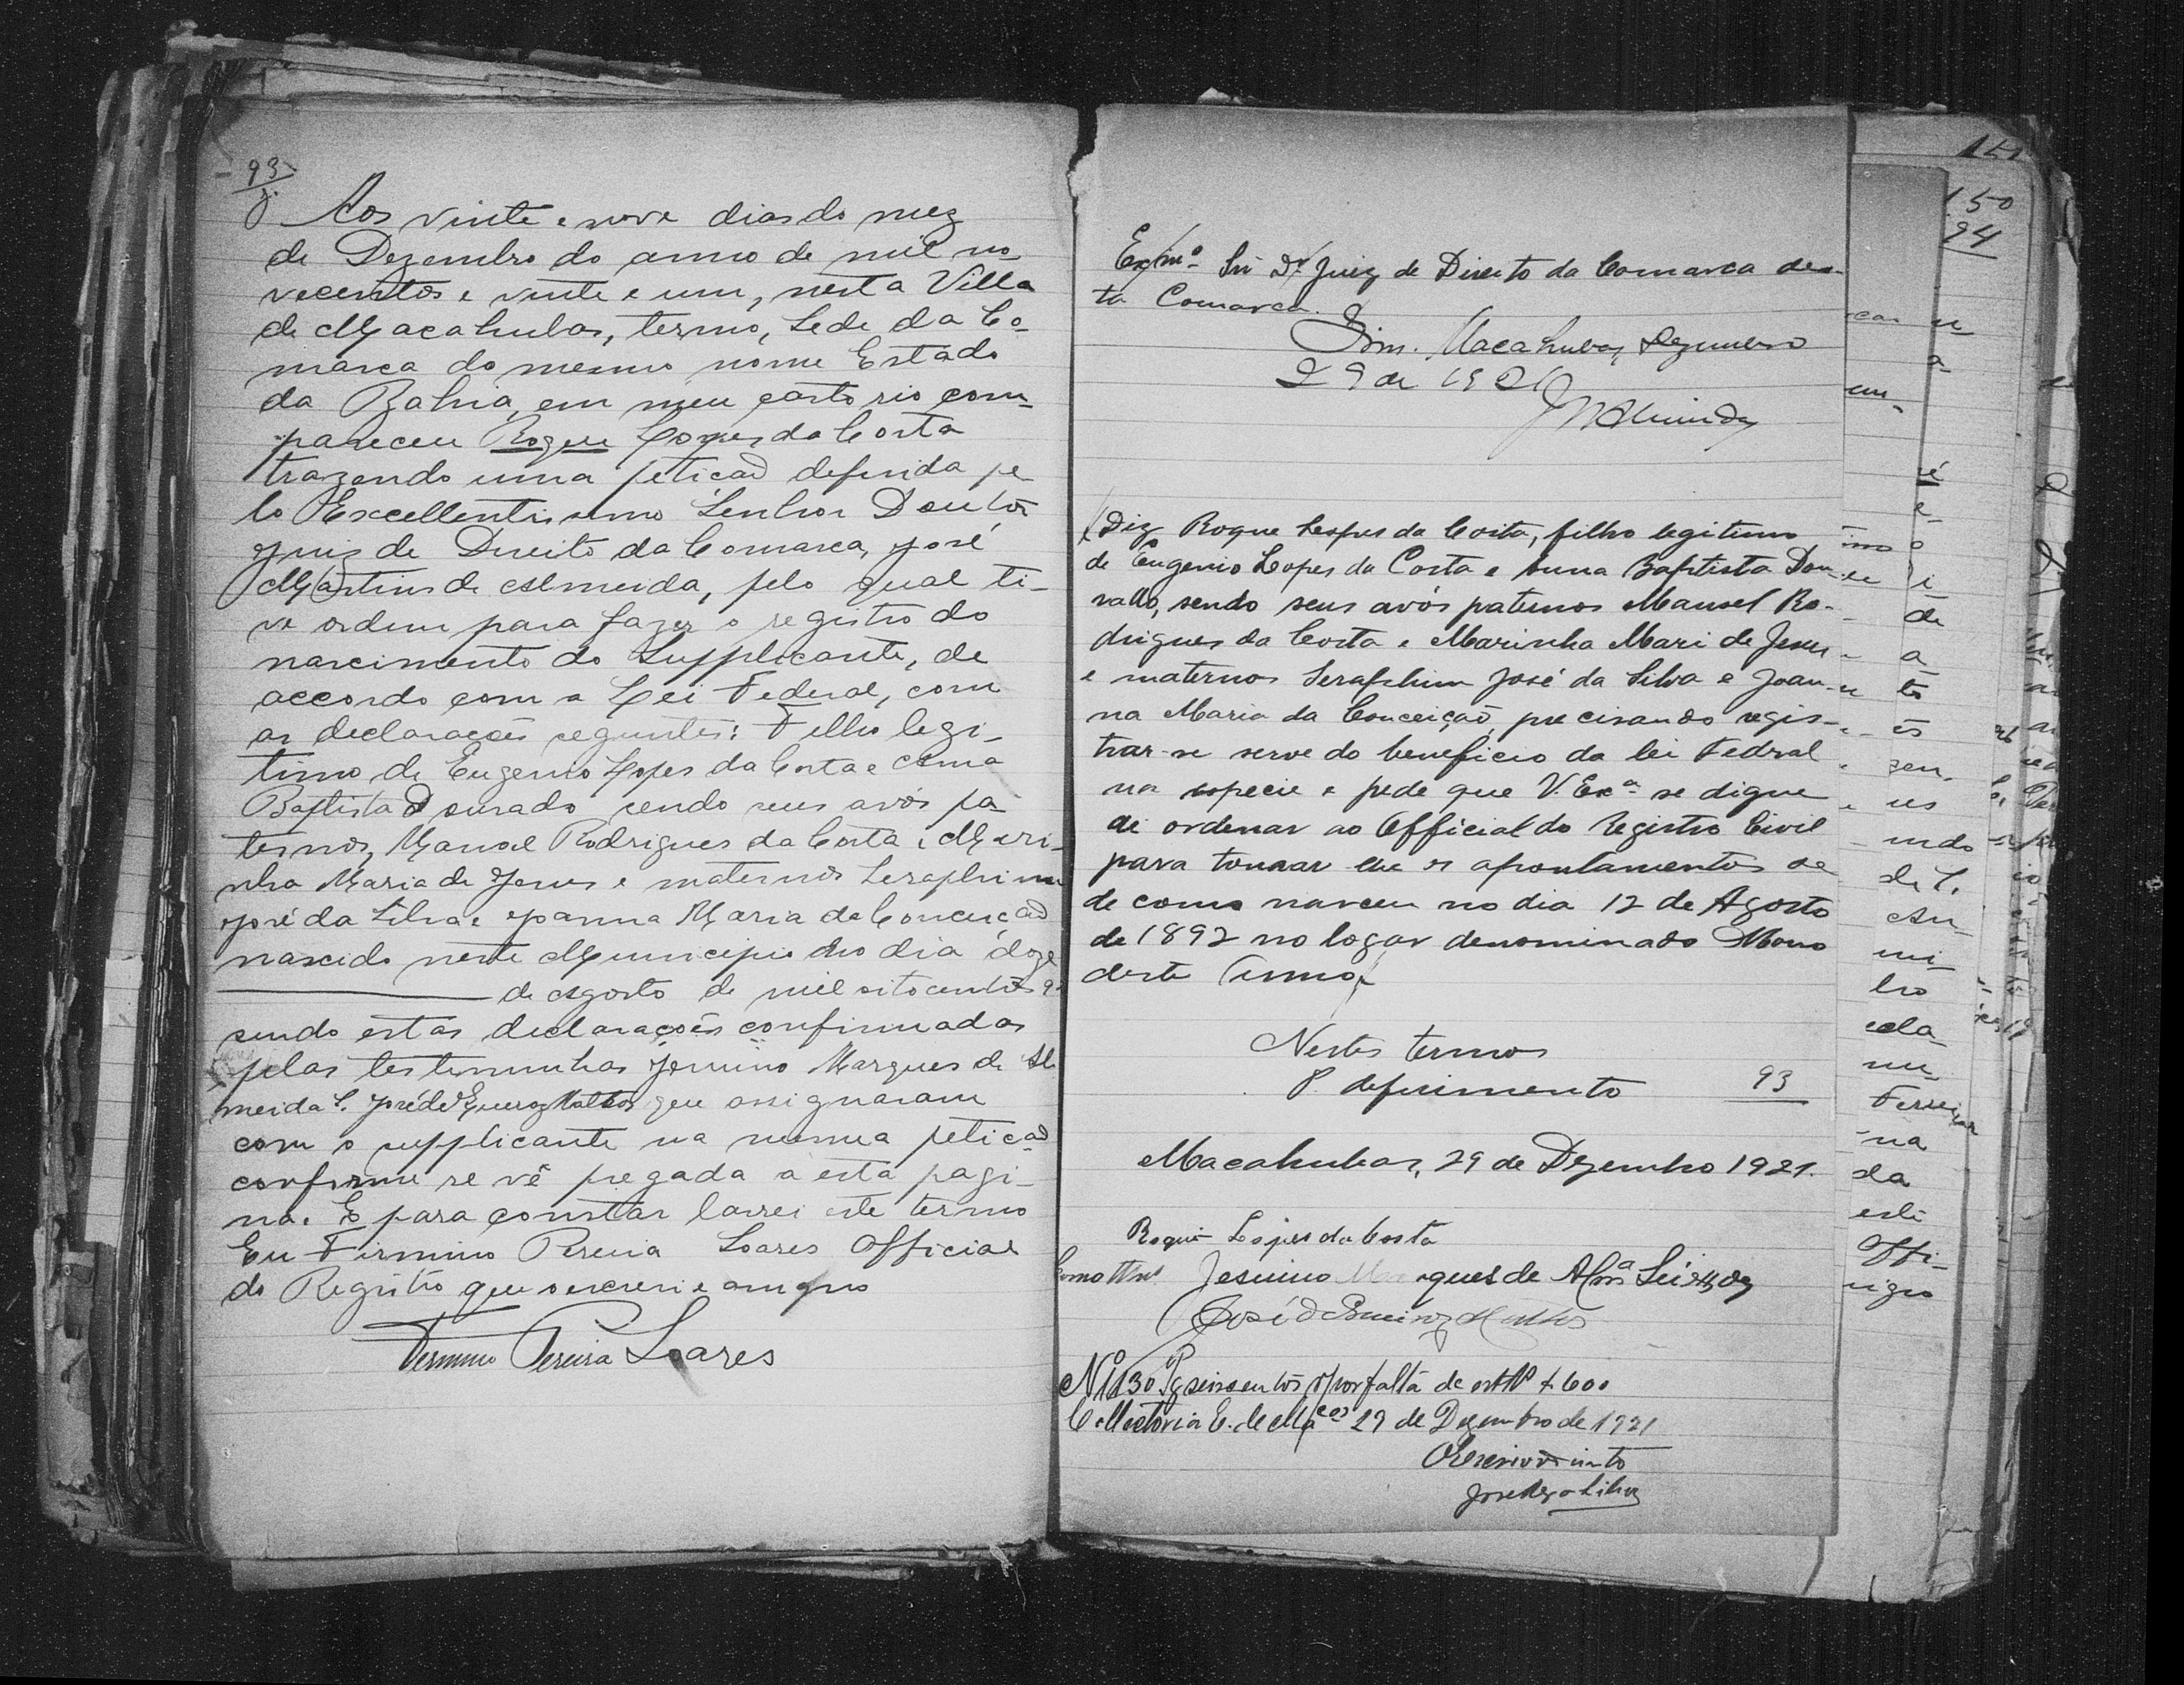 93
Aos vinte e nove dias do mez
de Dezembro do anno de mil no-
vecentos e vinte e um, nesta Villa
de Macahubas, termo, Sede da Co-
marca do mesmo nome Estado
da Bahia, em meu cartorio com-
pareceu Roque Lopes da Costa
trazendo uma petição deferida pe-
lo Excellentissimo Senhor Doutor
Juiz de Direito da Comarca, José
Martins de Almeida, pelo qual ti-
ve ordem para fazer o registro do
nascimento do Supplicante, de
accordo com a Lei Federal, com
as declarações seguintes: Filho legi-
timo de Eugenio Lopes da Costa e Anna
Baptista Dourado sendo seus avós pa
ternos, Manoel Rodrigues da Costa e Mari-
nha Maria de Jesus e maternos Seraphim
José da Silva e Joanna Maria da Conceição
nascido neste Municipio no dia doze
de Agosto de mil oitocentos e
sendo estas declarações confirmadas
pelas testemunhas Jesuino Marques de Al
meida L. José de Queiroz Mattos que assignaram
com o supplicante na mesma petição
conforme se vê pregada a esta pagi-
na. E para constar lavrei este termo
Eu Firmino Pereira Soares Official
do Registro que o escrevi e assigno
Firmino Pereira Soares
Exmo Snr Dr. Juiz de Direito da Comarca des-
ta Comarca.
Sim. Macahubas, Dezembro
29 de 1921
MAlmeida
Diz Roque Lopes da Costa, filho legitimo
de Eugenio Lopes da Costa e Anna Baptista Dou-
rado, sendo seus avós paternos Manoel Ro-
drigues da Costa e Marinha Mari de Jesus
e maternos Seraphim José da Silva e Joan-
na Maria da Conceição, precisando regis-
trar-se serve do beneficio da lei Federal
na especie e pede que V. Exª se digne
de ordenar ao Official do Registro Civil
para tomar lhe os apontamentos de
de como nasceu no dia 12 de Agosto
de 1892 no logar denominado
deste Termo.
Nestes termos
P. deferimento
93
Macahubas, 29 de Dezembro 1921.
Roque Lopes da Costa
Como ttas Jesuino Marques de Almª
José de Queiroz Mattos
Nº 1130 Pg seiscentos rs por falta de # 600
Collectoria E. de Macas 29 de Dezembro de 1921
150
94